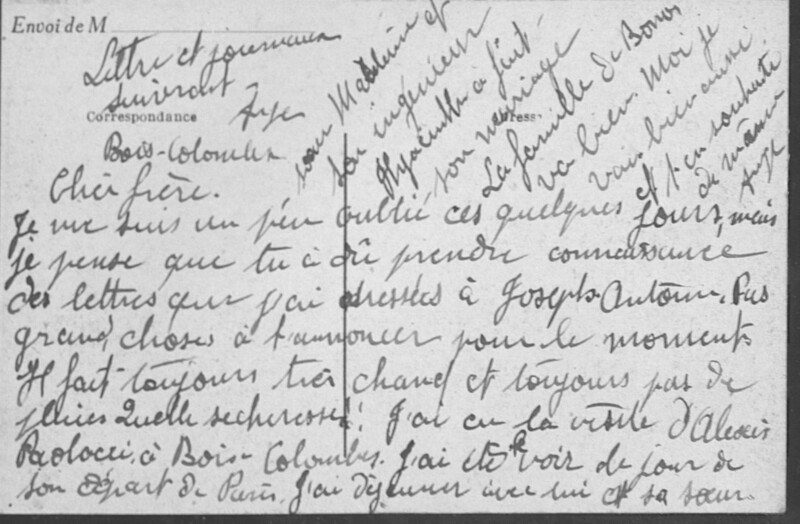 Envoi de M
Lettre et journeaux
suivront
Ange
Correspondance
Adresse
Bois-Colombes
Cher frère.
Je me suis un peu oublié ces quelques jours, mais
je pense que tu à dû prendre connaissance
des lettres que j'ai adressées à Joseph-Antoine. Pas
grand choses à t'annoncer pour le moments
Il fait toujours très chaud et toujours pas de
pluies quelle secheresse! J'ai eu la visite d'Alexis
Paolacci à Bois-Colombes. J'ai été le voir le jour de
son départ de Paris. J'ai déjeuner avec lui et sa sœur.
sœur Madeleine et
son ingénieur
Hyacinthe à fêté
son mariage
La famille de Bonos
va bien. Moi je
vais bien aussi
et t'en souhaite
de même
Ange